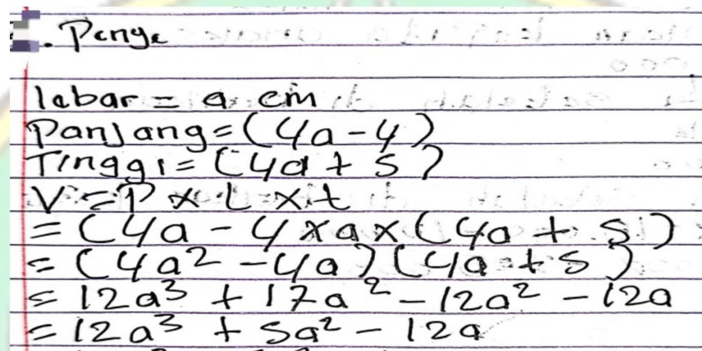 . Penye
lebar = a cm
Panjang = (4a - 4)
Tinggi = (4a + 5)
V = P x L x t
= (4a - 4 x a x (4a + 5)
= (4a² - 4a) (4a + 5)
= 12a³ + 17a² - 12a² - 12a
= 12a³ + 5a² - 12a